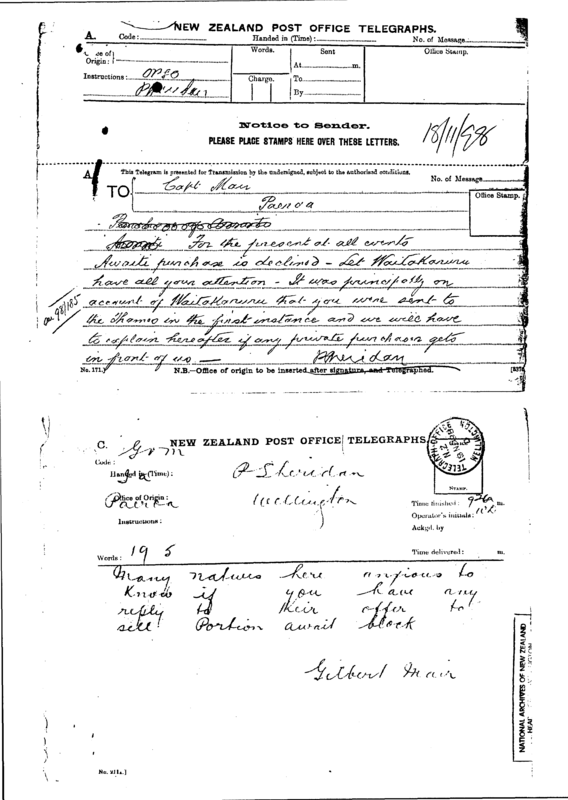 NEW ZEALAND POST OFFICE TELEGRAPHS.
A. Code: Handed in (Time): No. of Message
Office of Origin:
Words. Sent Office Stamp.
At m.
Instructions: OPSO Charge. To
PSheridan By
Notice to Sender.
PLEASE PLACE STAMPS HERE OVER THESE LETTERS.
18/11/98
A. This Telegram is presented for Transmission by the undersigned, subject to the authorised conditions. No. of Message
TO Capt Mair Office Stamp.
Paeroa
For the present at all events
Awaite purchase is declined - Let Waitakaruru
have all your attention - It was principally on
account of Waitakaruru that you were sent to
the Thames in the first instance and we will have
to explain hereafter if any private purchaser gets
in front of us — PSheridan
on 98/185
No. 171.] N.B.—Office of origin to be inserted after signature, and Telegraphed.
C. NEW ZEALAND POST OFFICE TELEGRAPHS.
Code:
Handed in (Time): P Sheridan
Office of Origin: Wellington
Paeroa
Instructions:
TELEGRAPH-OFFICE WELLINGTON
N.Z
19 NO 98
STAMP.
Time finished: m.
Operator's initials:
Ackgd. by
Words: 19 5 Time delivered: m.
Many natives here anxious to
know if you have any
reply to their offer to
sell Portion await block
Gilbert Mair
NATIONAL ARCHIVES OF NEW ZEALAND